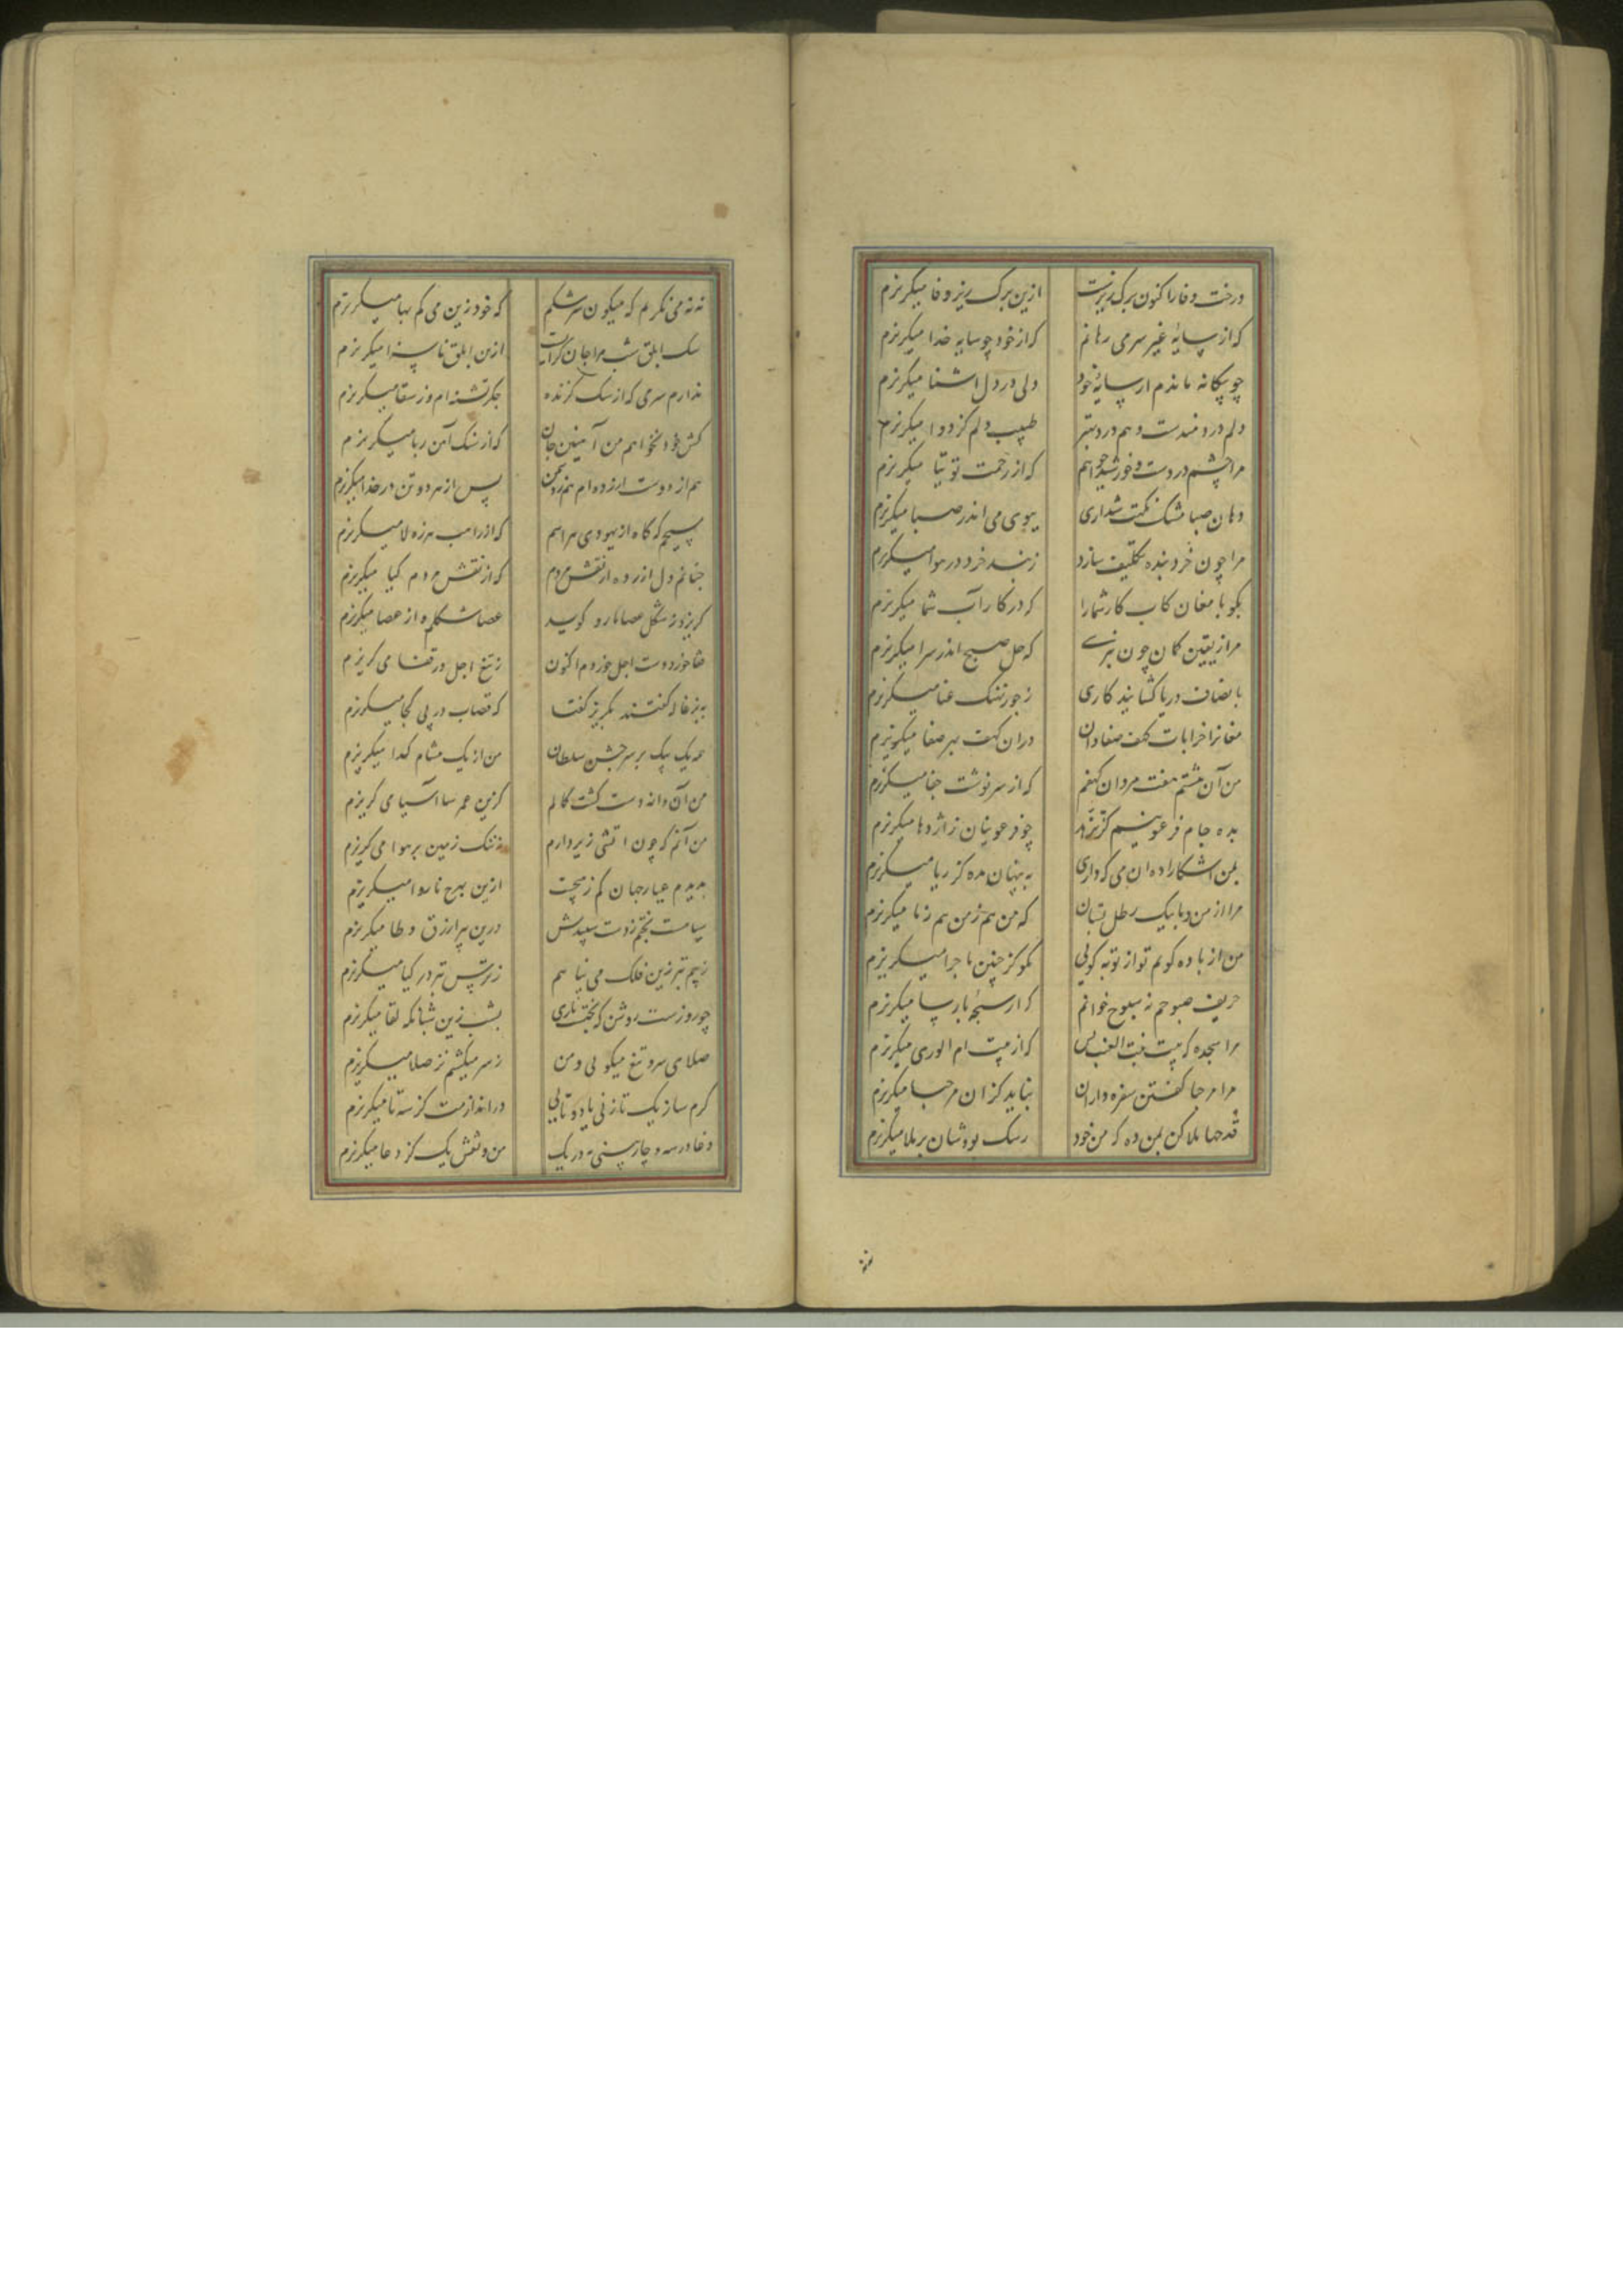 درخت وفا را کنون برگ ریزست ازین برک ریز وفا میکریزم
که از سایه غیر سر می رهانم که از خود چو سایه خدا میکریزم
چو بیکانه ماندم از سایه خود ولی در دل اشنا میکریزم
دلم دردمندست و هم درد بهتر طبیب دلم کز دوا میکریزم
مرا چشم دردست و خورشید خواهم که از زحمت توتیا میکریزم
دهان صبا مشک نکهت شد از می ببوی می اندر صبا میکریزم
مرا چون خرد بنده تکلیف سازد ز بند خرد در هوا میکریزم
بکو با مغان کاب کار شما را که در کار آب شما میکریزم
مرا ز یقین کمان چون که حل صبح اندر سرا میکریزم
بانصاف دریا کشانید کاری ز جور ننک عنا میکریزم
مغانرا خرابات کهف صفا دان دران کهف بهر صفا میکریزم
من آن هشتم هفت مردان کهفم که از سرنوشت جفا میکریزم
بده جام فرعونیم کز تزهد چو فرعونیان ز اژدها میکریزم
بمن اشکارا ده ان می که داری به پنهان مده کز ریا میکریزم
مرا از من و ما بیک رطل بستان که من هم ز من هم ز ما میکریزم
من از باده کویم تو از توبه کویی مکو کز چنین ماجرا میکریزم
حریف صبوحم نه سبوح خوانم که از سبحه پارسا میکریزم
مرا سجده که بیت بنت العنب بس که از بیت ام القری میکریزم
مرا مرحبا کفتن سفره داران نباید کزان مرحبا میکریزم
قدحها ملا کن بمن ده که من خود میکریزم
نه نه می نکیرم که میکون سرشکم که خود زین می کم بها میکریزم
سک ابلق شب مرا جان کزایست ازین ابلق ناسزا میکریزم
ندارم سری که از سک کزنده جکر تشنه ام وز سقا میکریزم
کش خود نخواهم من آهنین جان که از سنک آهن ربا میکریزم
هم از دوست ازرده ام هم ز دشمن پس از هر دو تن در خدا میکریزم
مسیحم که کاه از یهودی هراسم که از راهب هرزه لا میکریزم
چنانم دل ازرده از نقش مردم که از نقش مردم کیا میکریزم
کریزد ز شکل عصا مار و کوید عصا شکلم و از عصا میکریزم
قفا خورد دست اجل خوردم اکنون ز تیغ اجل در قفا می کریزم
به بزغاله کفتند بکریز کفتا که قصاب در پی کجا میکریزم
همه یک بیک بر سر جشن سلطان من از یک مشام کدا میکریزم
من آن دانه دست کشت کمالم کزین عمر سا آسیا می کریزم
من آنم که چون اتشی زیر دارم ز ننک زمین بر هوا می کریزم
بدیدم عیار جهان کم ز هیچست ازین بهرج ناروا میکریزم
سیا هست بختم ز دست سپیدش درین پیر ازرق وطا میکریزم
ز بیم تبرزین فلک می نیا هم ز ترس تبر در کیا میکریزم
چو روز است روشن که بختست تاری بشب زین شبانکه لقا میکریزم
صلای سر و تیغ میکویی و من نه سر میکشم نز صلا میکریزم
کرم ساز یک تا زنی یا دو تایی در اندازمت کز سه تا میکریزم
دغا در سه و چار بینی نه در یک من و نقش یک کز دغا میکریزم